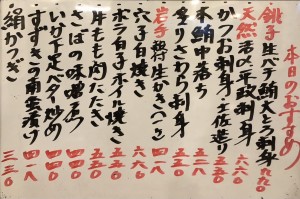 本日のおすすめ
銚子 生バチ鮪大とろ刺身 九九〇
天然 活〆平政刺身 六六〇
かつお刺身・土佐造り 六六〇
本鮪中落ち 五二八
炙りさわら刺身 五五〇
岩手 殻付生かき(一ケ)
穴子白焼き 六六〇
ボラ白子ホイル焼き 五五〇
牛もも肉たたき 五五〇
さばの味噌煮 四四〇
いか下足バター炒め 四四〇
すずきの南蛮漬け 四一八
絹かつぎ 三三〇